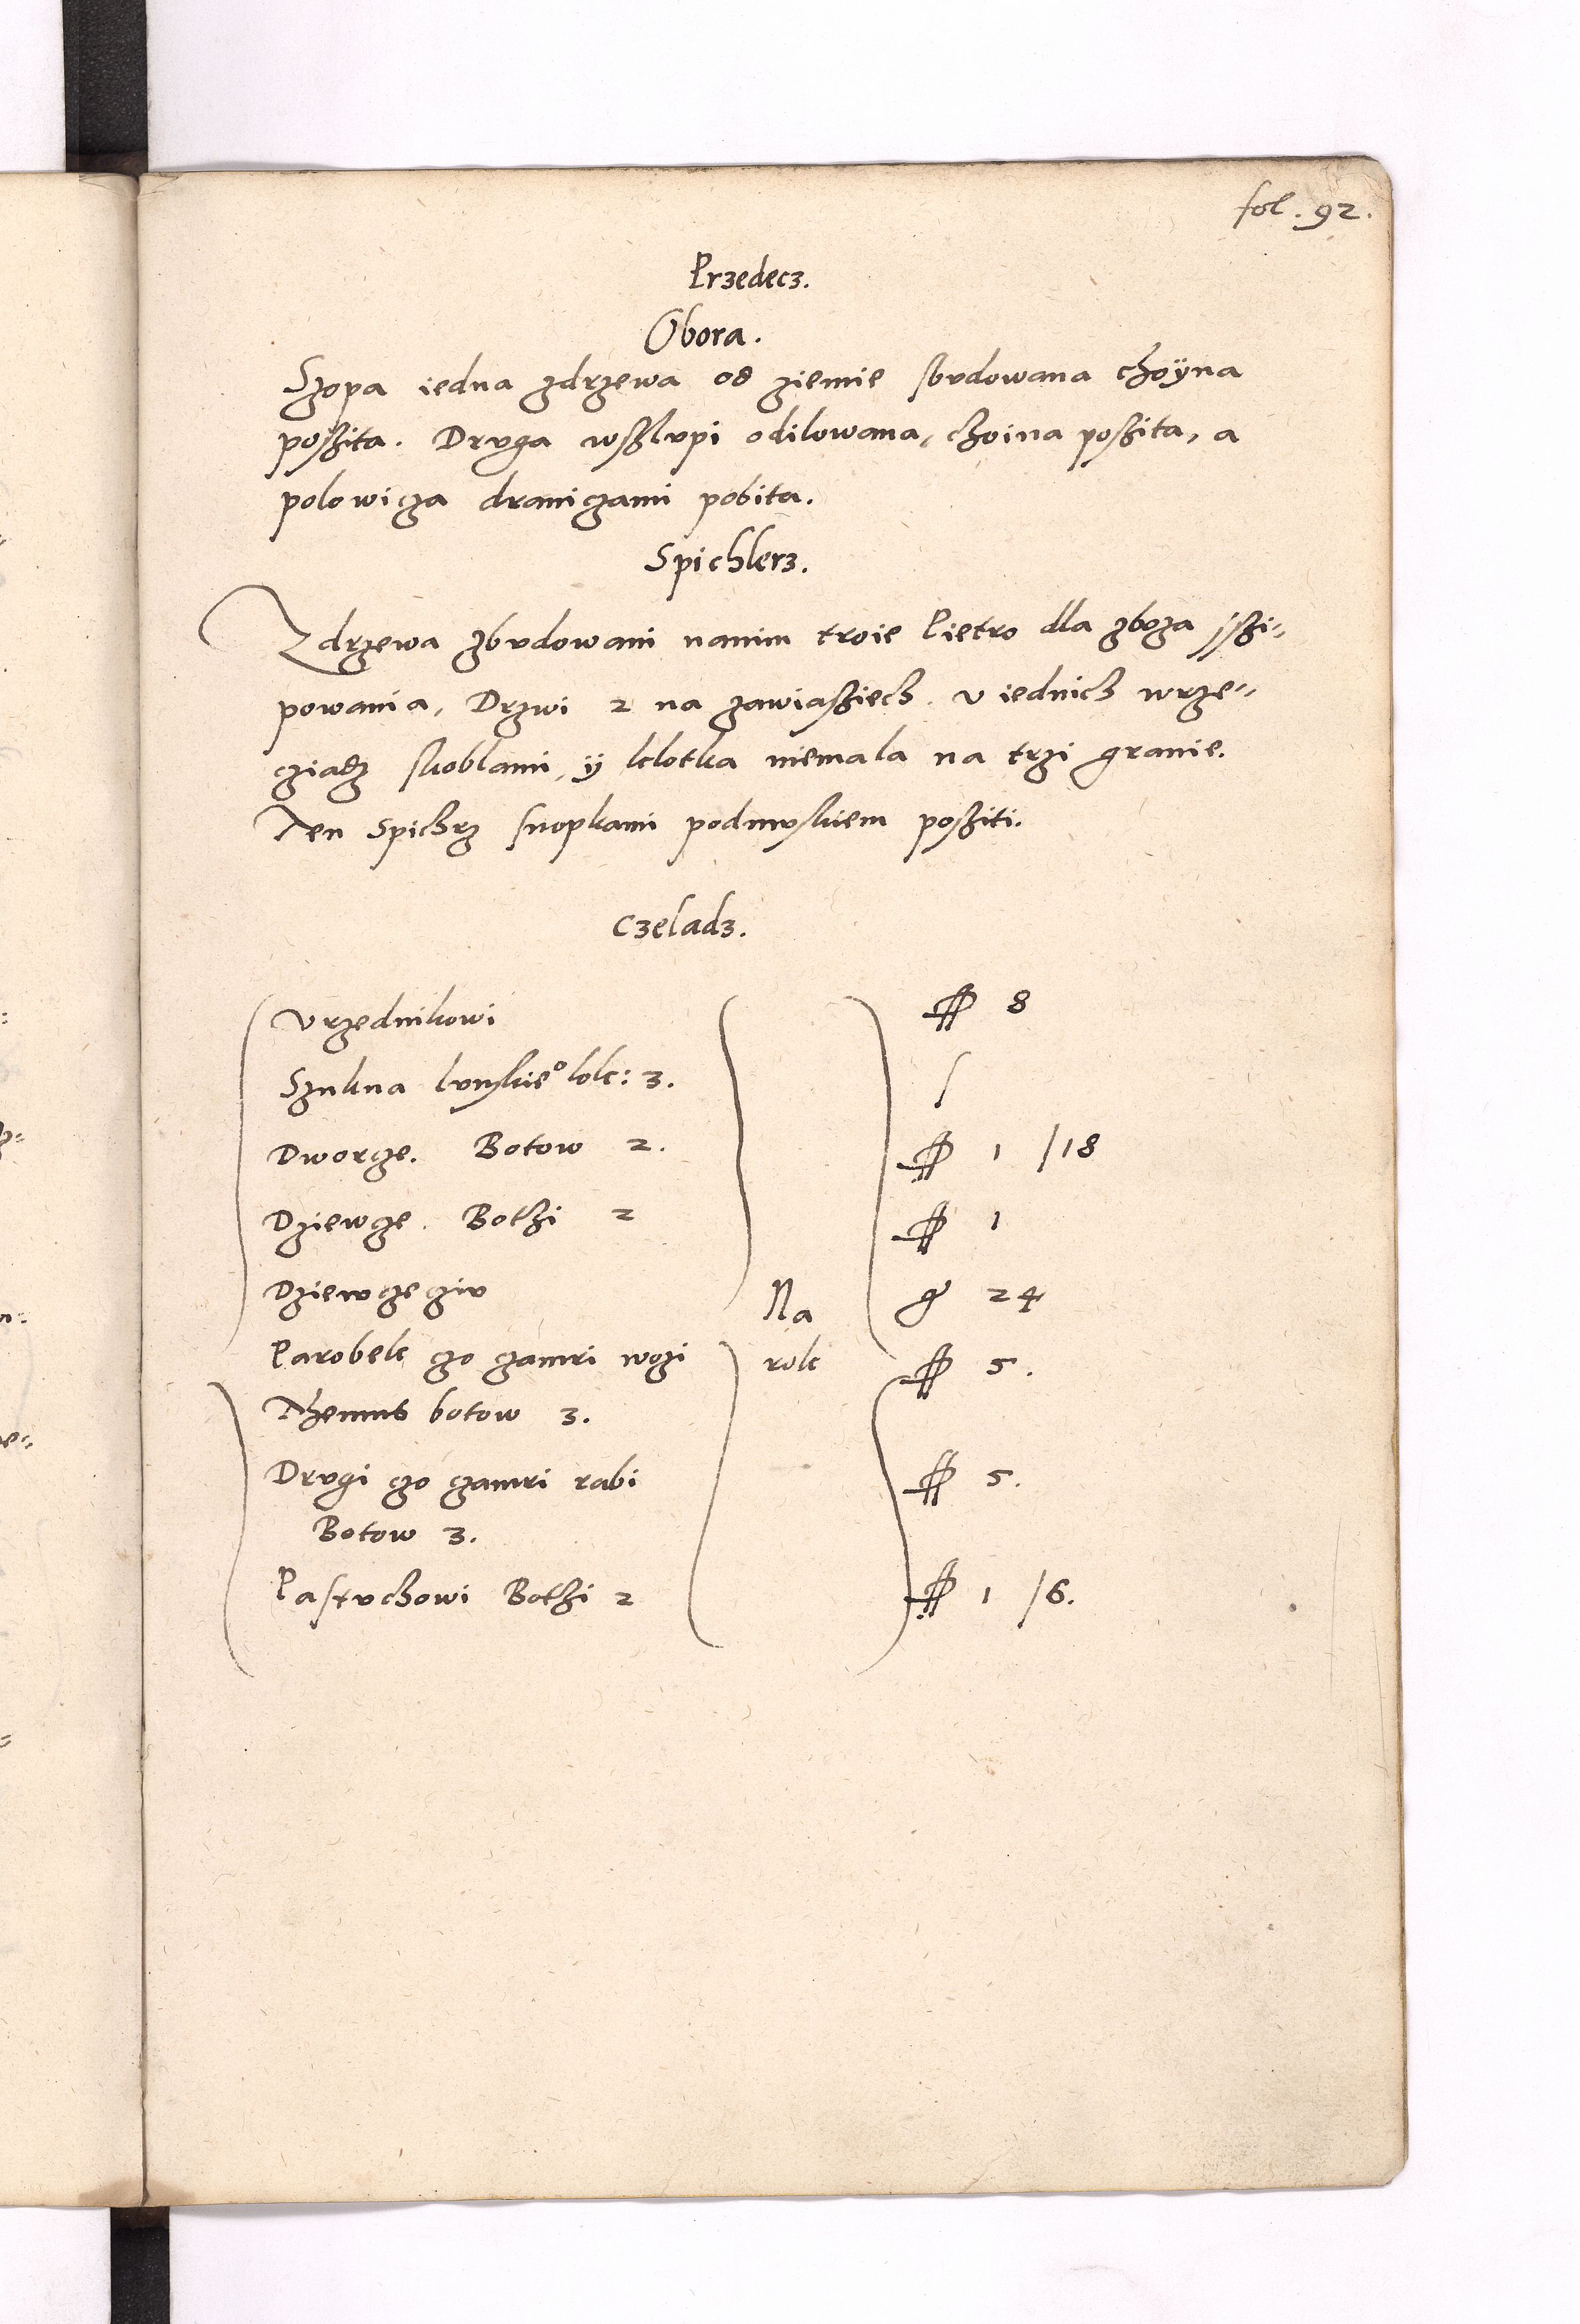 fol. 92.
Przedecz.
Obora.
Szopa iedna zdrzewa od ziemie sbvdowana choÿna
poszita. Drvga wszlvpi odilowana, choina poszita, a
polowicza draniczami pobita.
Spichlerz.
Zdrzewa zbvdowani nanim troie Pietro dla zboza sszi-
powania, Drzwi 2 na zawiasziech. v iednich wrze-
cziadz skoblami, ÿ klotka niemala na trzi granie.
Ten Spichrz snopkami podmoskiem posziti.
Czeladz.
Vrzednikowi 8
Szukna lvnskie° lok: 3. /
Dworcze. Botow 2. 1 /18
Dziewcze. Bothi 2 1
Dziewcze ziv g 24
Na
Parobek czo czamri wozi rok 5.
Themuz botow 3.
Drvgi czo czamri rabi 5.
Botow 3.
Pastvchowi Bothi 2 1 /6.